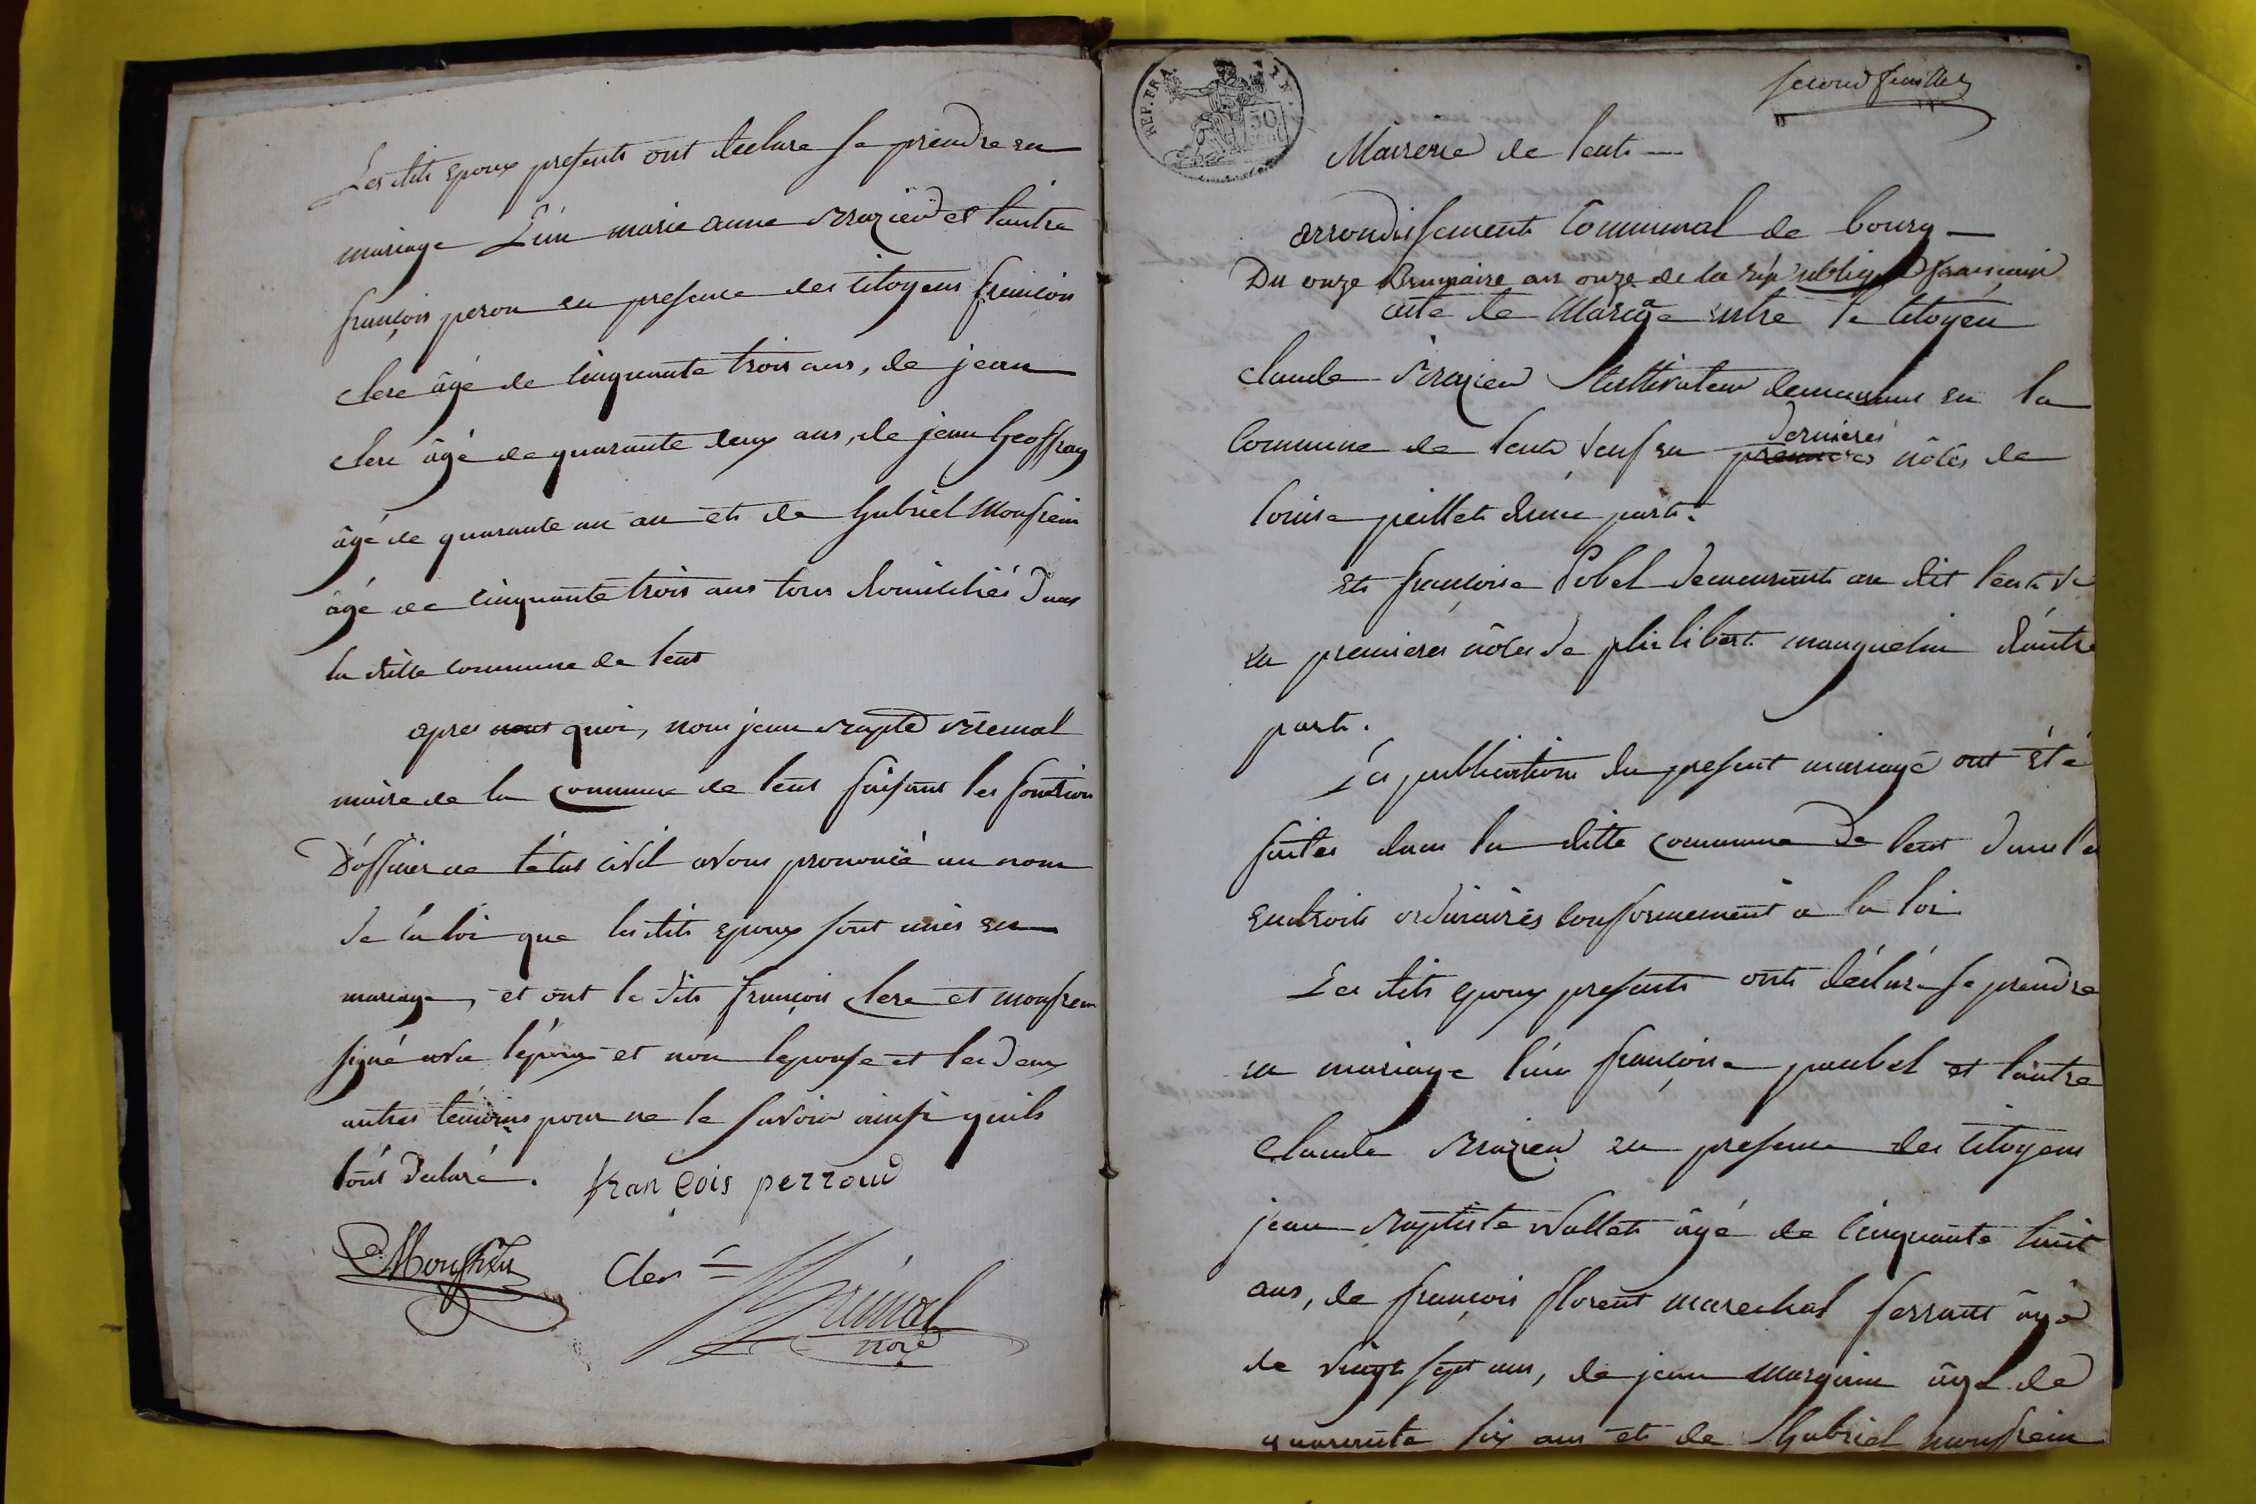 Les dits epoux presents ont declare se prendre en
mariage L'un marie anne Brazier et l'autre
françois peron en presence des citoyens francois
clerc âgé de cinquante trois ans, de jean
clerc âgé de quarante deux ans, de jean Geoffray
âgé de quarante un an et de Gabriel Monfrein
âgé de cinquante trois ans tous domiciliés dans
la ditte commune de lent
apres quoi, nous jean Bapte Bremal
maire de la commune de lent faisant les fonction
D'officier de l'etat civil avons prononcé au nom
de la loi que les dits epoux sont unis en
mariage, et ont le dits françois clerc et monfrein
signé avec l'epoux et non lepouse et les deux
autres témoins pour ne le savoir ainsi quils
l'ont declaré. françois perroud
Monfrein Clerc
Brémal
REP. FRA.
50
second feuillet
Mairerie de lent
arrondissement Communal de bourg
Du onze Brumaire an onze de la république française
acte de Mariage entre le Citoyen
claude Brazier Cultivateur demeurant en la
Commune de lent veuf en premieres dernieres nôces de
louise peillet d'une part.
et françoise Pobel demeurant au dit lent ve
en premieres nôces de philibert manguelin d'autre
part.
Les publications du present mariage ont été
faites dans la ditte commune de lent dans les
endroits ordinaires conformement a la loi
Les dits epoux presents ont déclaré se prendre
en mariage l'un françoise paubel et l'autre
Claude Brazier en presence des Citoyens
jean Baptiste Vallet âgé de cinquante huit
ans, de françois florent marechal ferrant âgé
de vingt sept ans, de jean Marguin âgé de
quarente six ans et de Gabriel monfrein